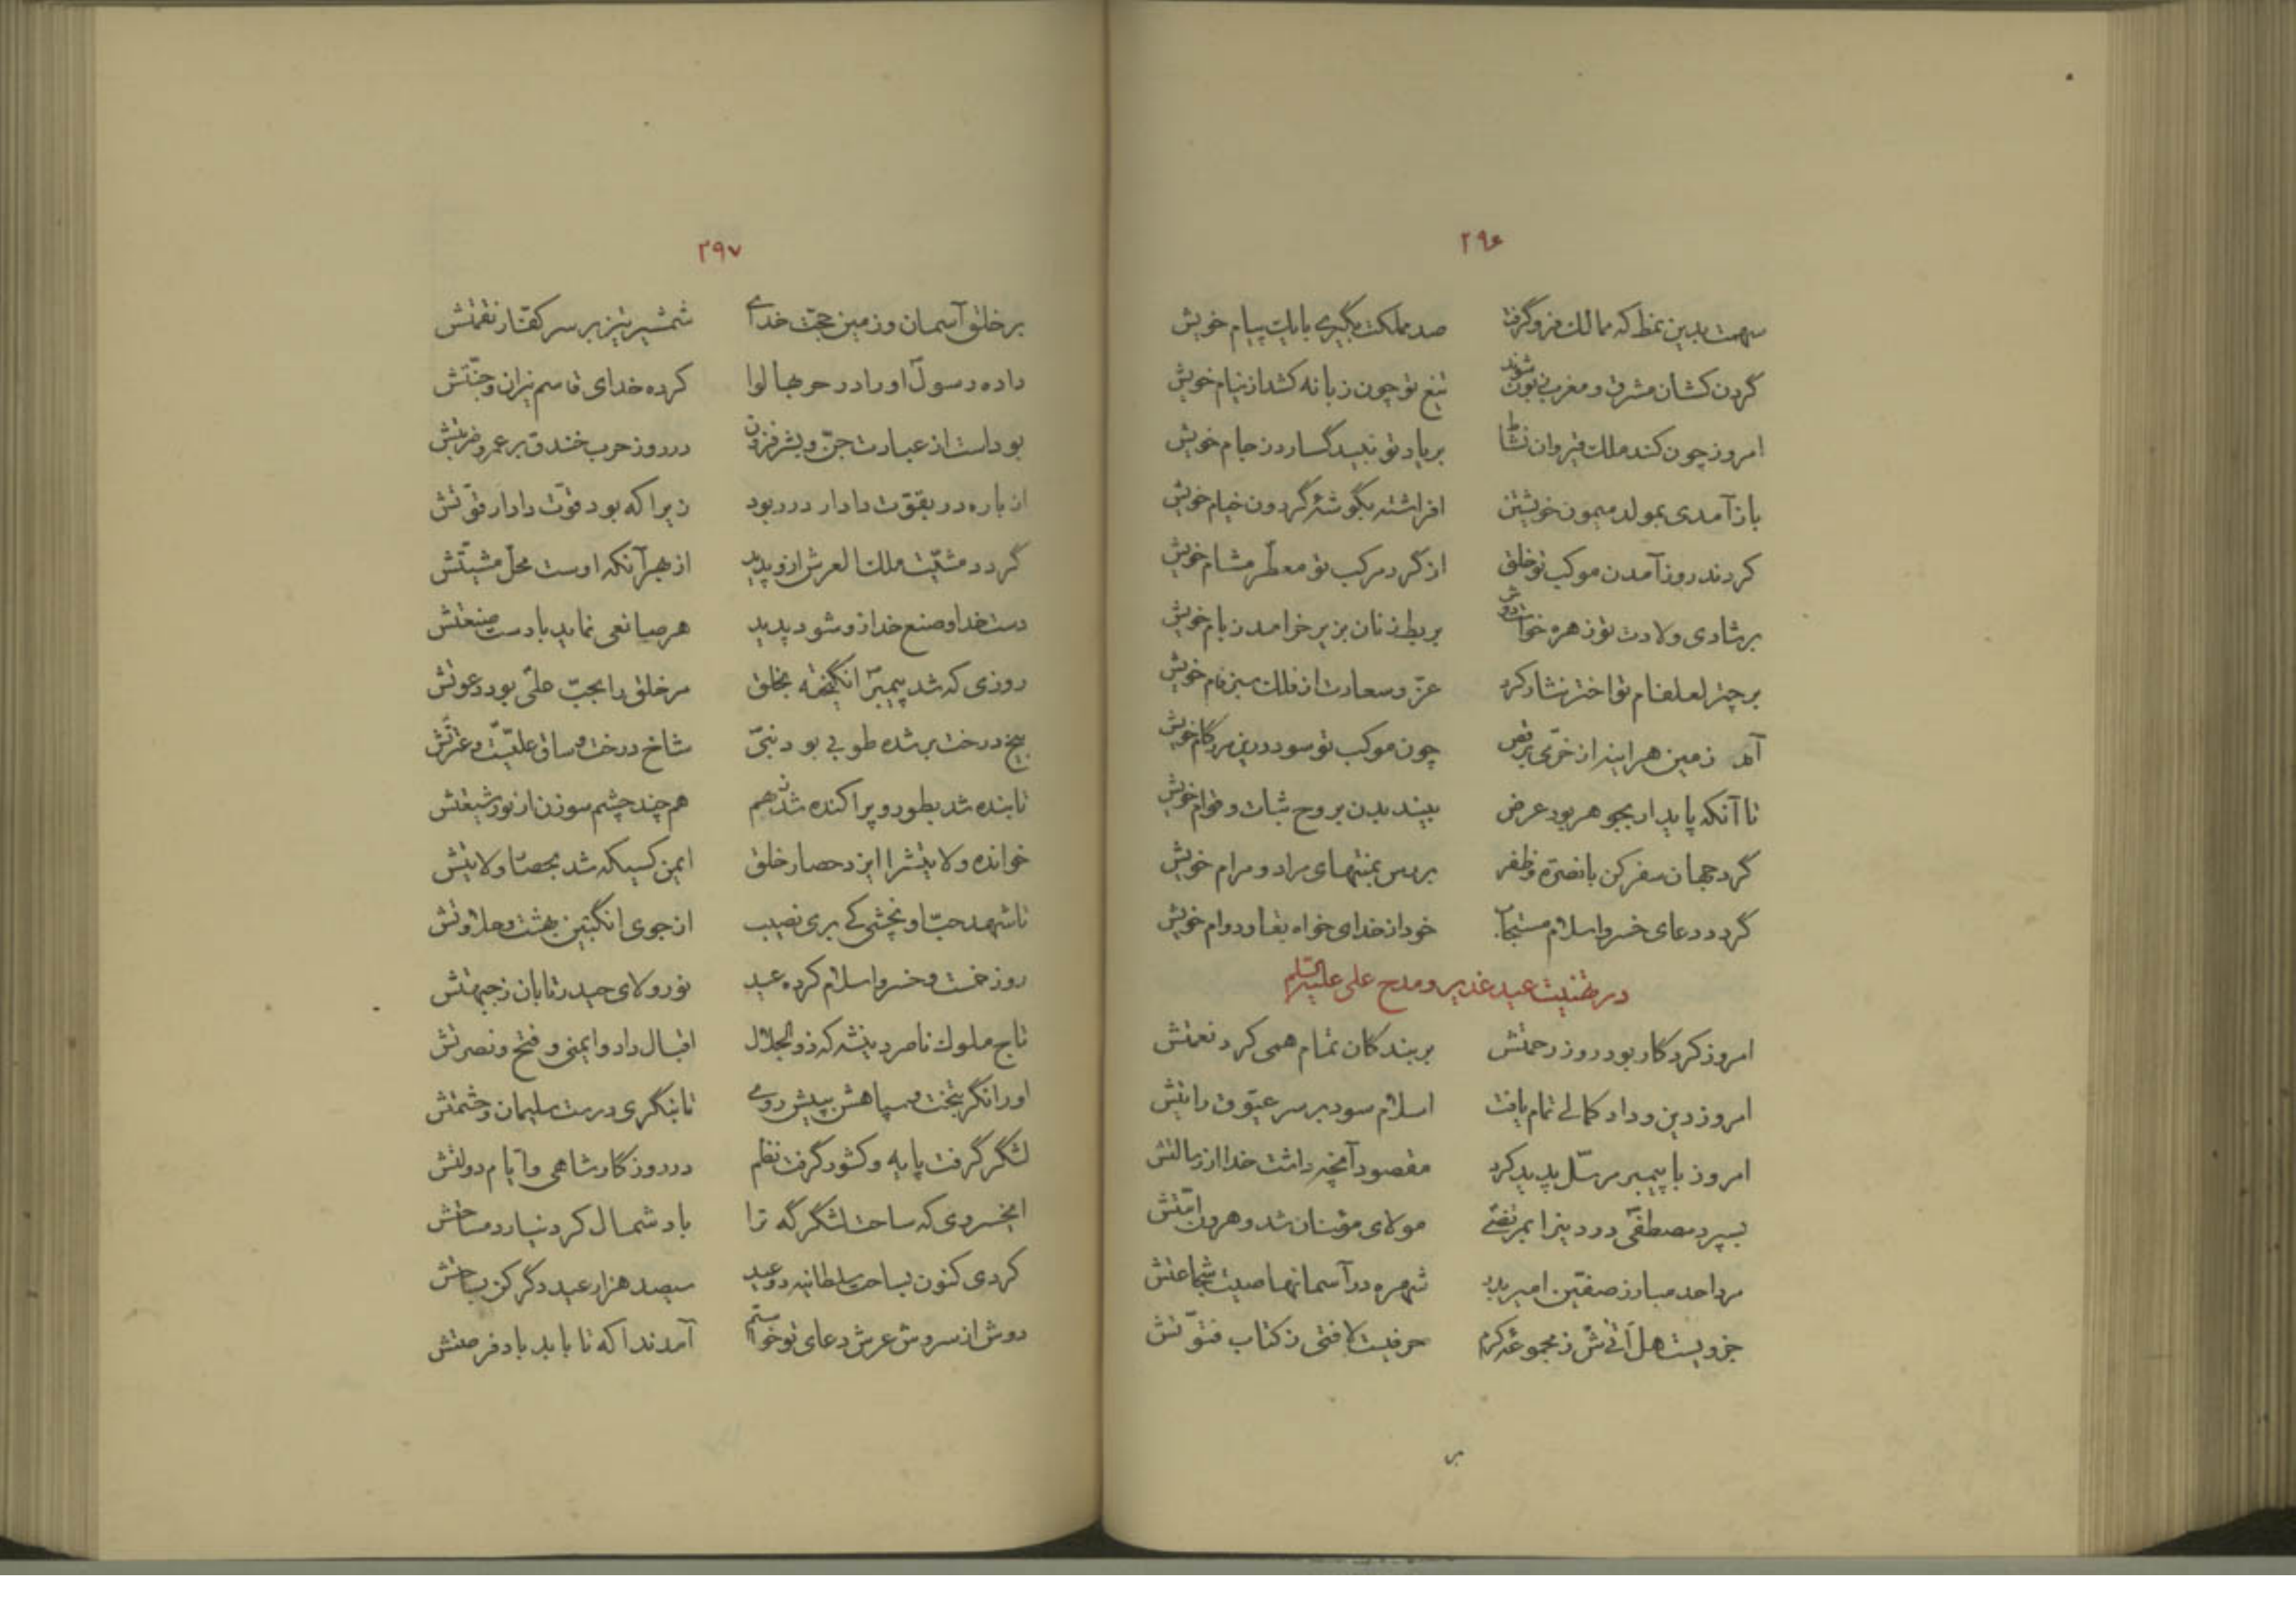 ۲۹۶
سهمت بدین نمط که ممالک فرو گرفت صد مملکت بگیری با یک پیام خویش
گردن کشان مشرق و مغرب زبون شوند تیغ تو چون زبانه کشد از نیام خویش
امروز چون کند ملک قیروان نشاط بر یاد تو نبید گسارد ز جام خویش
باز آمدی بمولد میمون خویشتن افراشته بگوشهٔ گردون خیام خویش
کردند روز آمدن موکب تو خلق از گرد مرکب تو معطّر مشام خویش
بر شادی ولادت تو زهره خواست دوش بربط زنان بزیر خرامد ز بام خویش
بر چتر لعلفام تو اختر نثار کرد عزّ و سعادت از فلک سبز فام خویش
آمد زمین هراینه از خرّمی برقص چون موکب تو سود درین مرز گام خویش
تا آنکه پایدار بجوهر بود عرض بیند بدن بروح ثبات و قوام خویش
گرد جهان سفر کن با نصرة و ظفر بررس بمنتهای مراد و مرام خویش
گردد دعای خسرو اسلام مستجاب خود از خدای خواه بقا و دوام خویش
در تهنیت عید غدیر و مدح علی علیه السلم
امروز کردگار بود روز رحمتش بر بندگان تمام همی کرد نعمتش
امروز دین و داد کمالی تمام یافت اسلام سود بر سر عیّوق رایتش
امروز با پیمبر مرسل پدید کرد مقصود آنچه داشت خدا از رسالتش
بسپرد مصطفیّ در دینرا بمرتضی مولای مؤمنان شد و هرون امّتش
مرد احد مبارز صفّین امیر بدر شهره در آسمانها صیت شجاعتش
جزویست هل اتیٰ ش ز مجموعهٔ کرم حرفیست لافتی ز کتاب فتوّتش
بر
۲۹۷
بر خلق آسمان و زمین حجّت خدای شمشیر تیز بر سر کفّار نقمتش
داده رسولّ او را در حربها لوا کرده خدای قاسم نیران و جنّتش
بوداست از عبادت جنّ و بشر فزون در روز حرب خندق بر عمرو ضربتش
از باره در بقوّت دادار در ربود زیرا که بود قوّت دادار قوّتش
گردد مشیّت ملک العرش ازو پدید از بهر آنکه اوست محلّ مشیّتش
دست خدا و صنع خدا زو شود پدید هر صانعی نماید با دست صنعتش
روزی که شد پیمبرّ انگیخته بخلق مر خلق را بحبّ علیّ بود دعوتش
بیخ درخت بر شده طوبی بود نبیّ شاخ درخت و ساق علیّت و عترتش
تابنده شد بطور و پراکنده شد ز هم هم چند چشم سوزن از نور شیعتش
خوانده ولایتشرا ایزد حصار خلق ایمن کسیکه شد بحصار ولایتش
تا شهد حبّ او نچشی کی بری نصیب از جوی انگبین بهشت و حلاوتش
روز خمست و خسرو اسلام کرده عید نور ولای حیدر تابان ز جبهتش
تاج ملوک ناصر دینشه که ذوالجلال اقبال داد و ایمنی و فتح و نصرتش
او را نگر بتخت و سپاهش بپیش روی تا بنگری درست سلیمان و حشمتش
لشگر گرفت پایه و کشور گرفت نظم در روزگار شاهی و ایّام دولتش
ایخسروی که ساحت لشگرگه ترا باد شمال گرد نیارد مساحتش
کردی کنون بساحت سلطانیه دو عید سیصد هزار عید دگر کن بساحتش
دوش از سروش عرش دعای تو خواستم آمد ندا که تا باید باد فرصتش